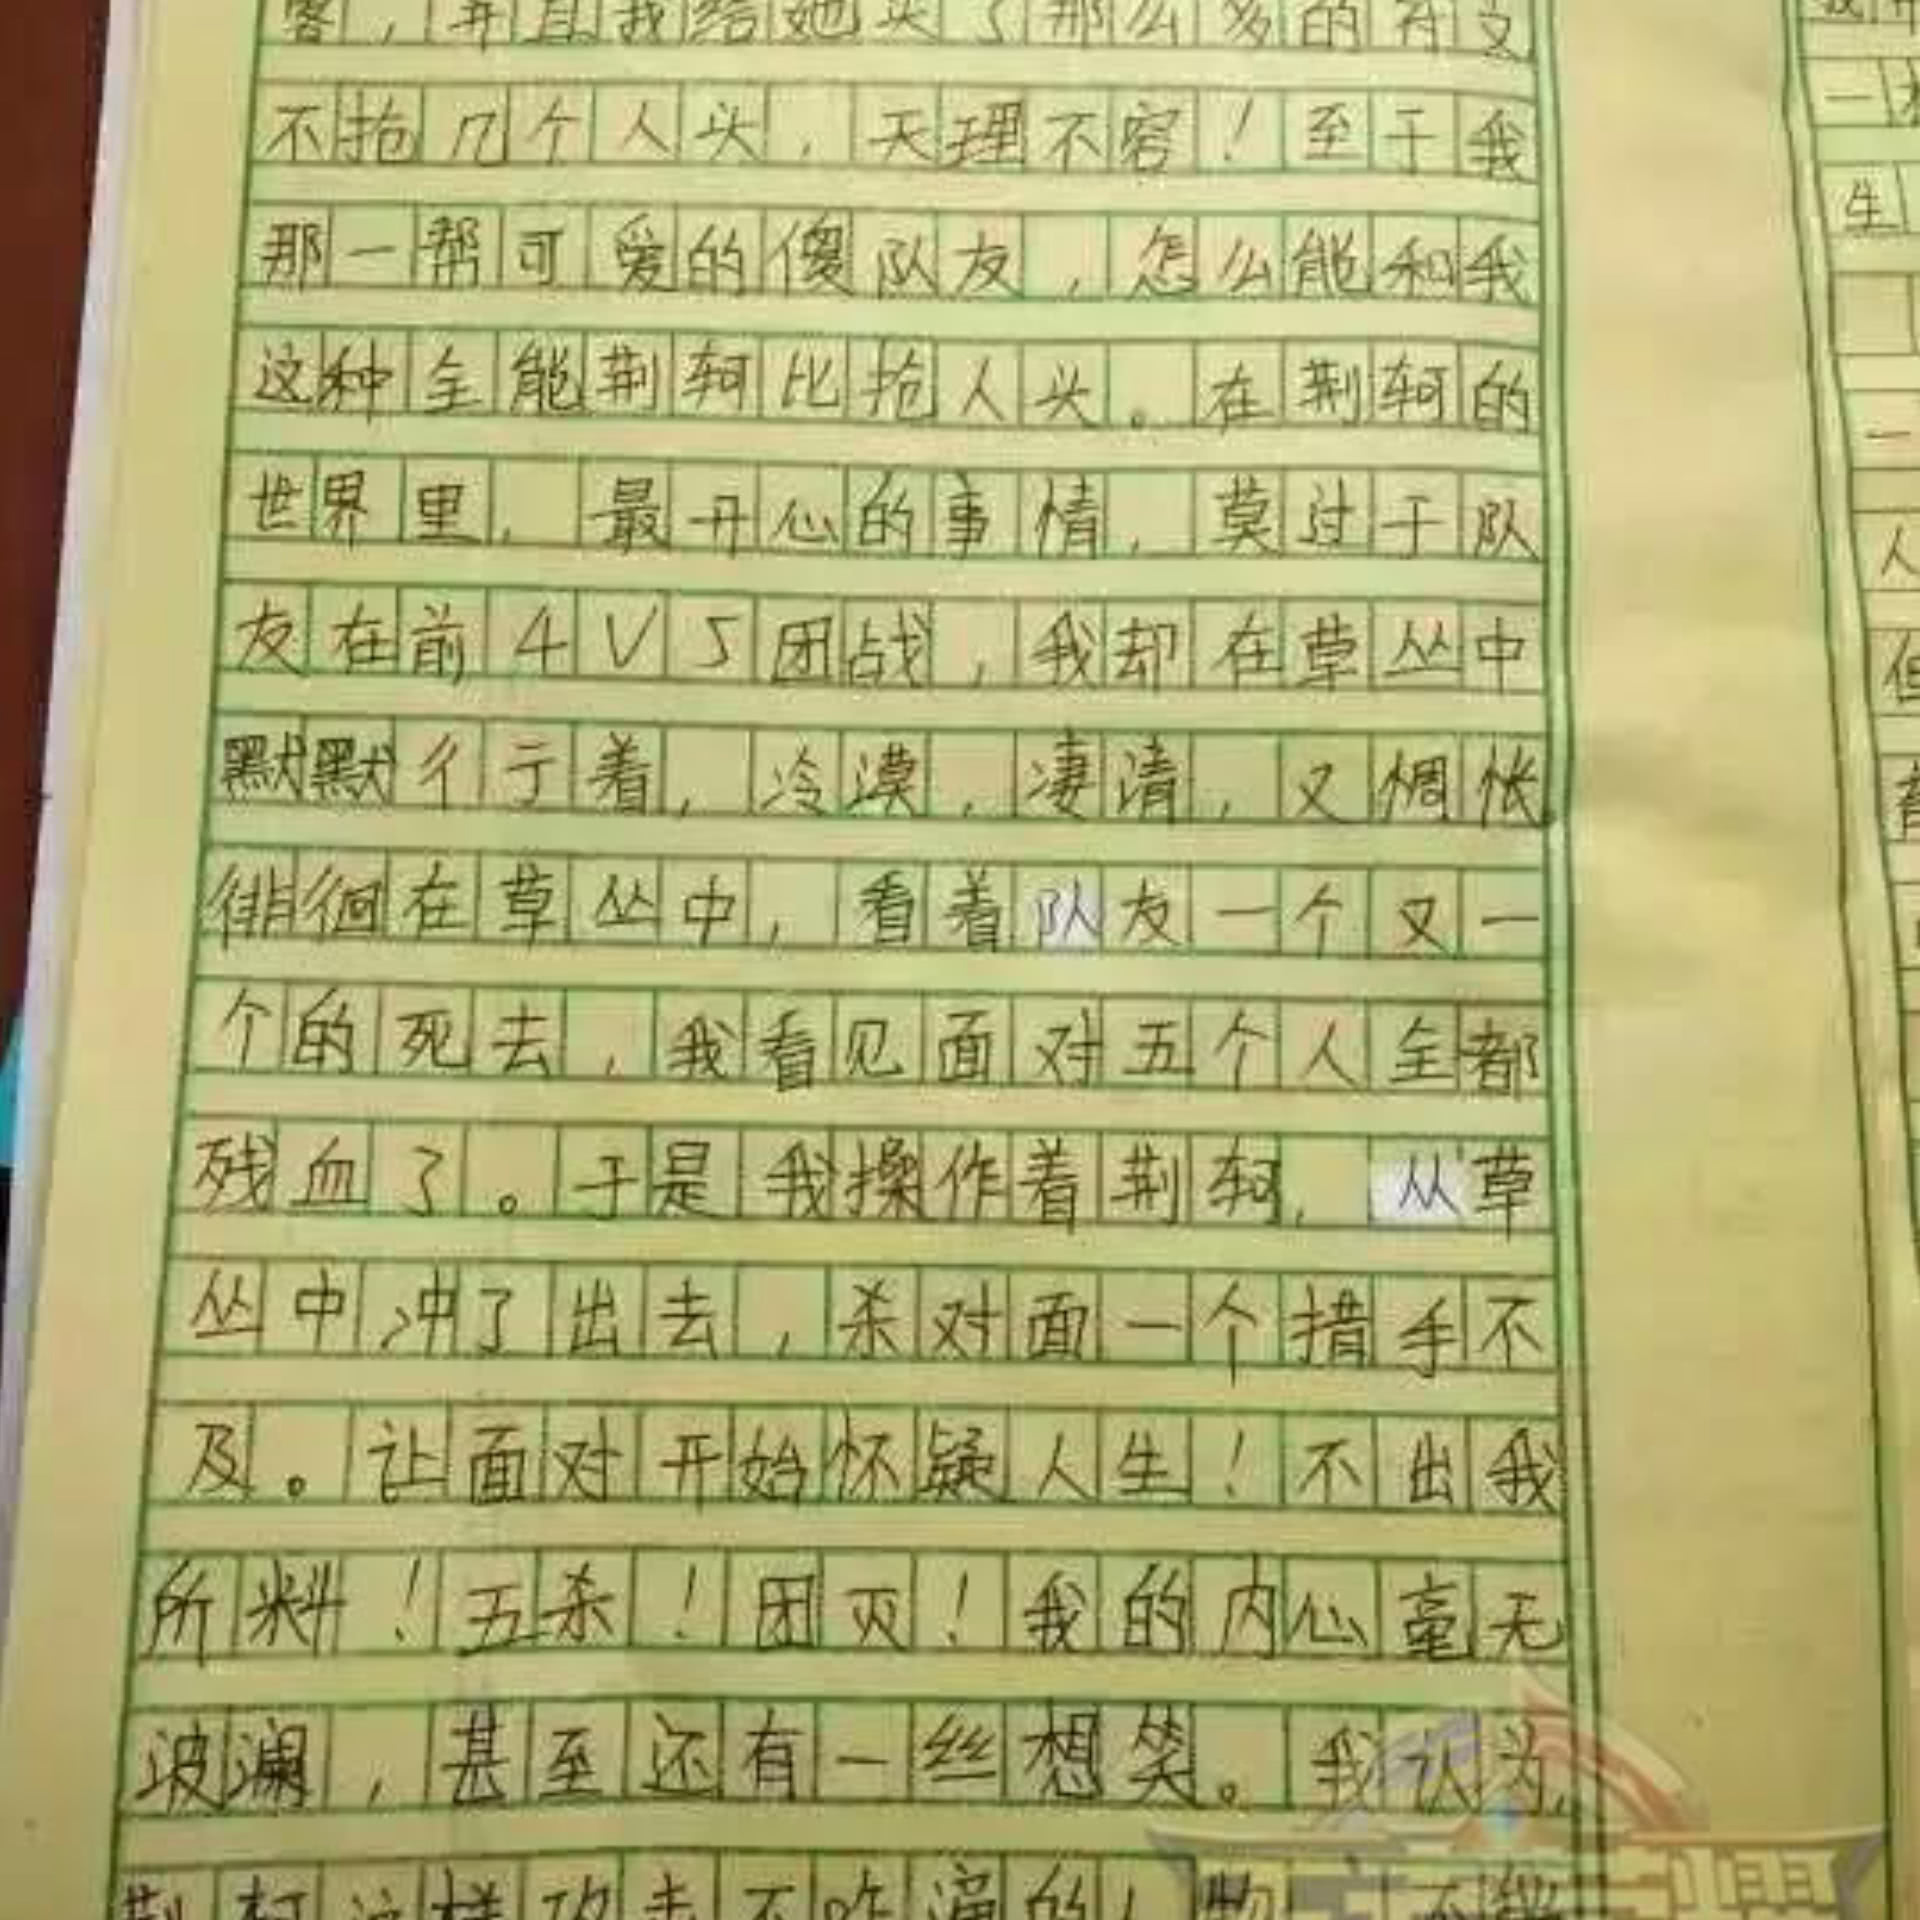 客，并且我给她买了那么多的符文
不抢几个人头，天理不容！至于我
那一帮可爱的傻队友，怎么能和我
这种全能荆轲比抢人头。在荆轲的
世界里，最开心的事情，莫过于队
友在前4V5团战，我却在草丛中
默默彳亍着，冷漠，凄清，又惆怅，
徘徊在草丛中，看着队友一个又一
个的死去，我看见面对五个人全都
残血了。于是我操作着荆轲，从草
丛中冲了出去，杀对面一个措手不
及。让面对开始怀疑人生！不出我
所料！五杀！团灭！我的内心毫无
波澜，甚至还有一丝想笑。我认为，
荆轲这样攻击不
一
生
一
人
但